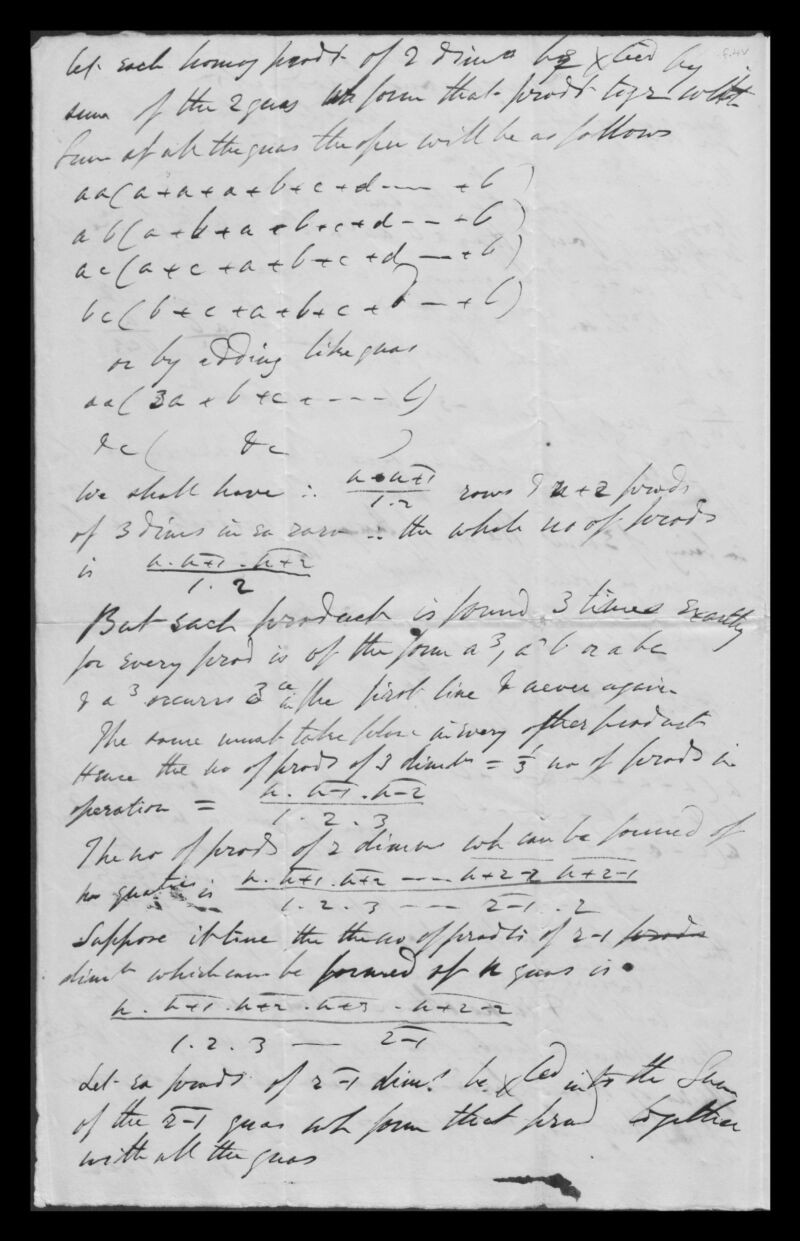 let each homog prodt of 2 dimns be ×lied by
sum of the 2 quas wh form that prodt togr with
Sum of all the quas the oper will be as follows
aa(a+a+a+b+c+d-- +l)
ab(a+b+a+b+c+d-- +l)
ac(a+c+a+b+c+d-- +l)
bc(b+c+a+b+c+d-- +l)
or by adding like quas
aa(3a+b+c+---l)
&c( &c )
We shall have ∴ n.n+1/1.2 rows & n+2 prods
of 3 dims in ea row ∴ the whole no of prods
is n.n+1.n+2/1.2
But each product is found 3 times exactly
for every prod is of the form a³, a²b or abc
& a³ occurs 3 in the first line & never again
The same must take place in every other product
Hence the no of prods of 3 dimns = 1/3 no of prods in
operation = n.n-1.n-2/1.2.3
The no of prods of r dimns wh can be formed of
n quaties is n.n+1.n+2 --- n+r-2 n+r-1/1.2.3 --- r-1.r
Suppose it true the the no of prodts of r-1 prods
dimns which can be formed of n quas is
n.n+1.n+2.n+3 - n+r-2/1.2.3 --- r-1
Let ea prod of r-1 dims be ×lied into the Sum
of the r-1 quas wh form that prod together
with all the quas